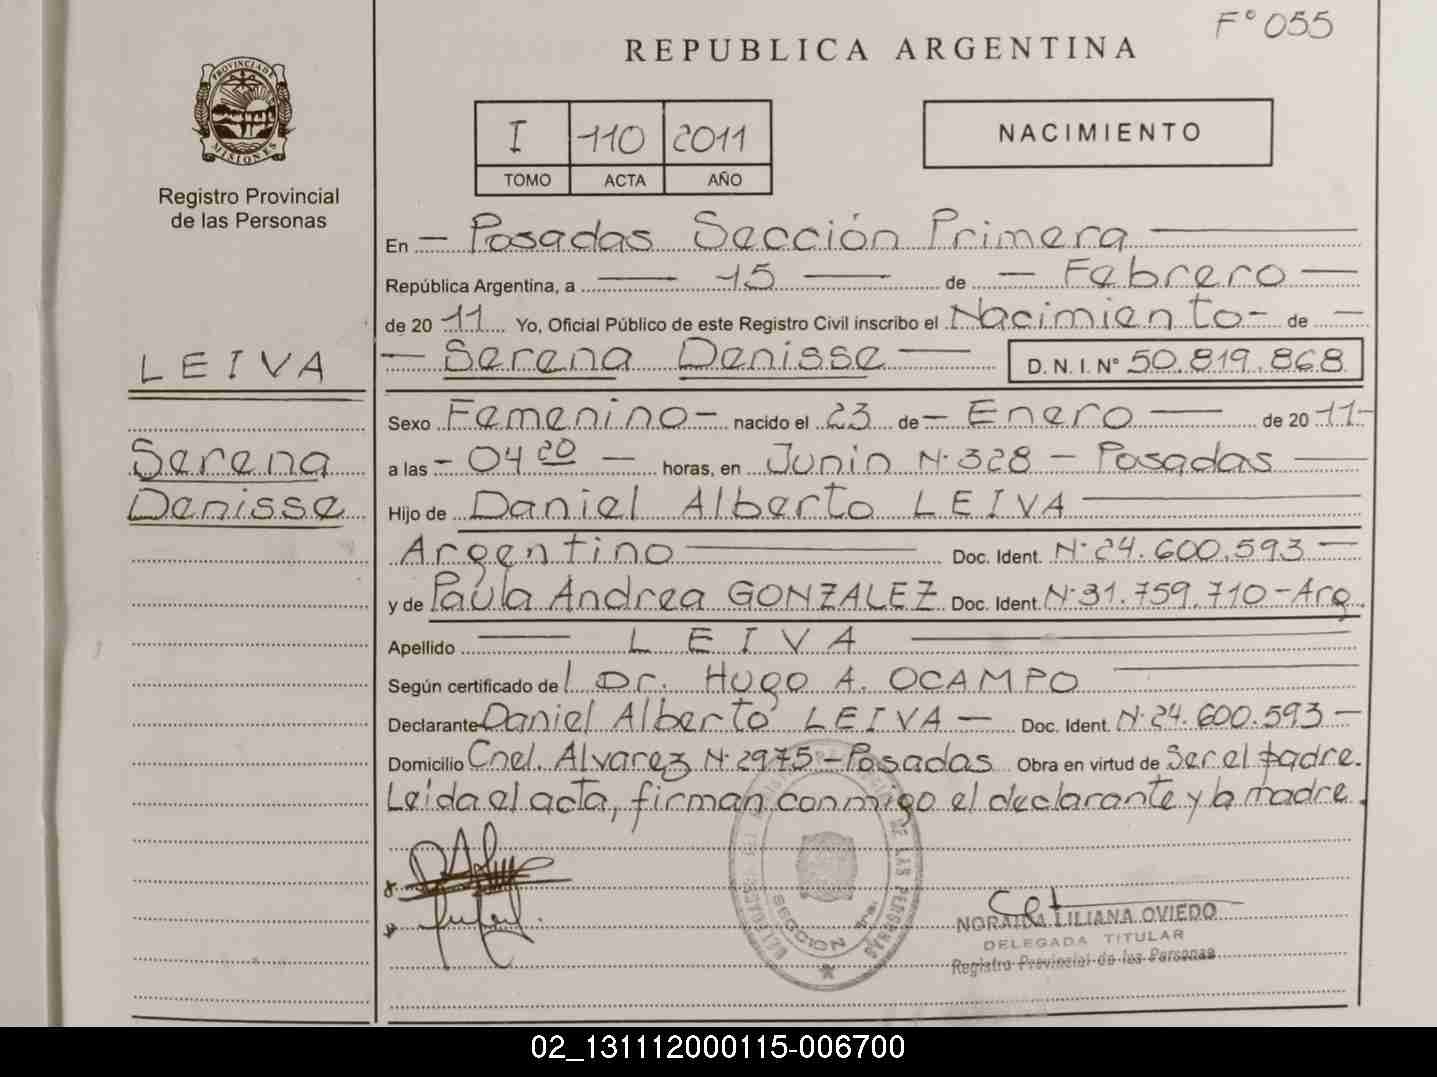 F° 055
REPUBLICA ARGENTINA
PROVINCIA DE
MISIONES
Registro Provincial
de las Personas
I 110 2011
TOMO ACTA AÑO
NACIMIENTO
En — Posadas Sección Primera —
República Argentina, a — 15 — de — Febrero —
de 2011 Yo, Oficial Público de este Registro Civil inscribo el Nacimiento - de —
— Serena Denisse — D.N.I. N° 50.819.868
LEIVA
Serena
Denisse
Sexo Femenino - nacido el 23 de - Enero — de 2011 -
a las - 04 20 — horas, en Junin N° 328 - Posadas —
Hijo de Daniel Alberto LEIVA —
Argentino — Doc. Ident. N° 24.600.593 —
y de Paula Andrea GONZALEZ Doc. Ident. N° 31.759.710 - Arg.
Apellido — LEIVA —
Según certificado del Dr. Hugo A. OCAMPO —
Declarante Daniel Alberto LEIVA — Doc. Ident. N° 24.600.593 —
Domicilio Cnel. Alvarez N° 2975 - Posadas Obra en virtud de Ser el padre.
Leída el acta, firman conmigo el declarante y la madre.
DE LAS PERSONAS
SECCION 1ra.
NORAIDA LILIANA OVIEDO
DELEGADA TITULAR
Registro Provincial de las Personas
02_131112000115-006700